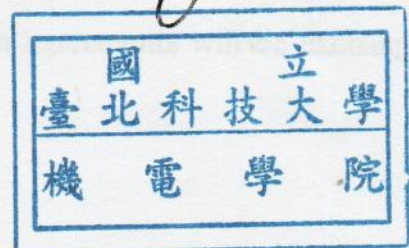 國立
臺北科技大學
機電學院